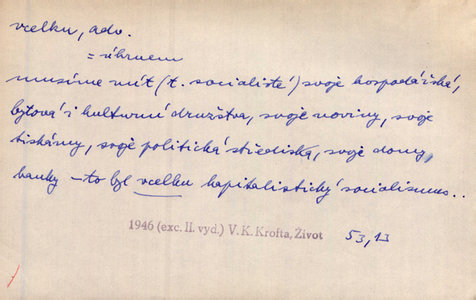 vcelku, adv.
= úhrnem
musíme mít (t. socialisté) svoje hospodářská,
bytová i kulturní družstva, svoje noviny, svoje
tiskárny, svoje politická střediska, svoje domy,
banky – to byl vcelku kapitalistický socialismus..
1946 (exc. II. vyd.) V. K. Krofta, Život 53,13